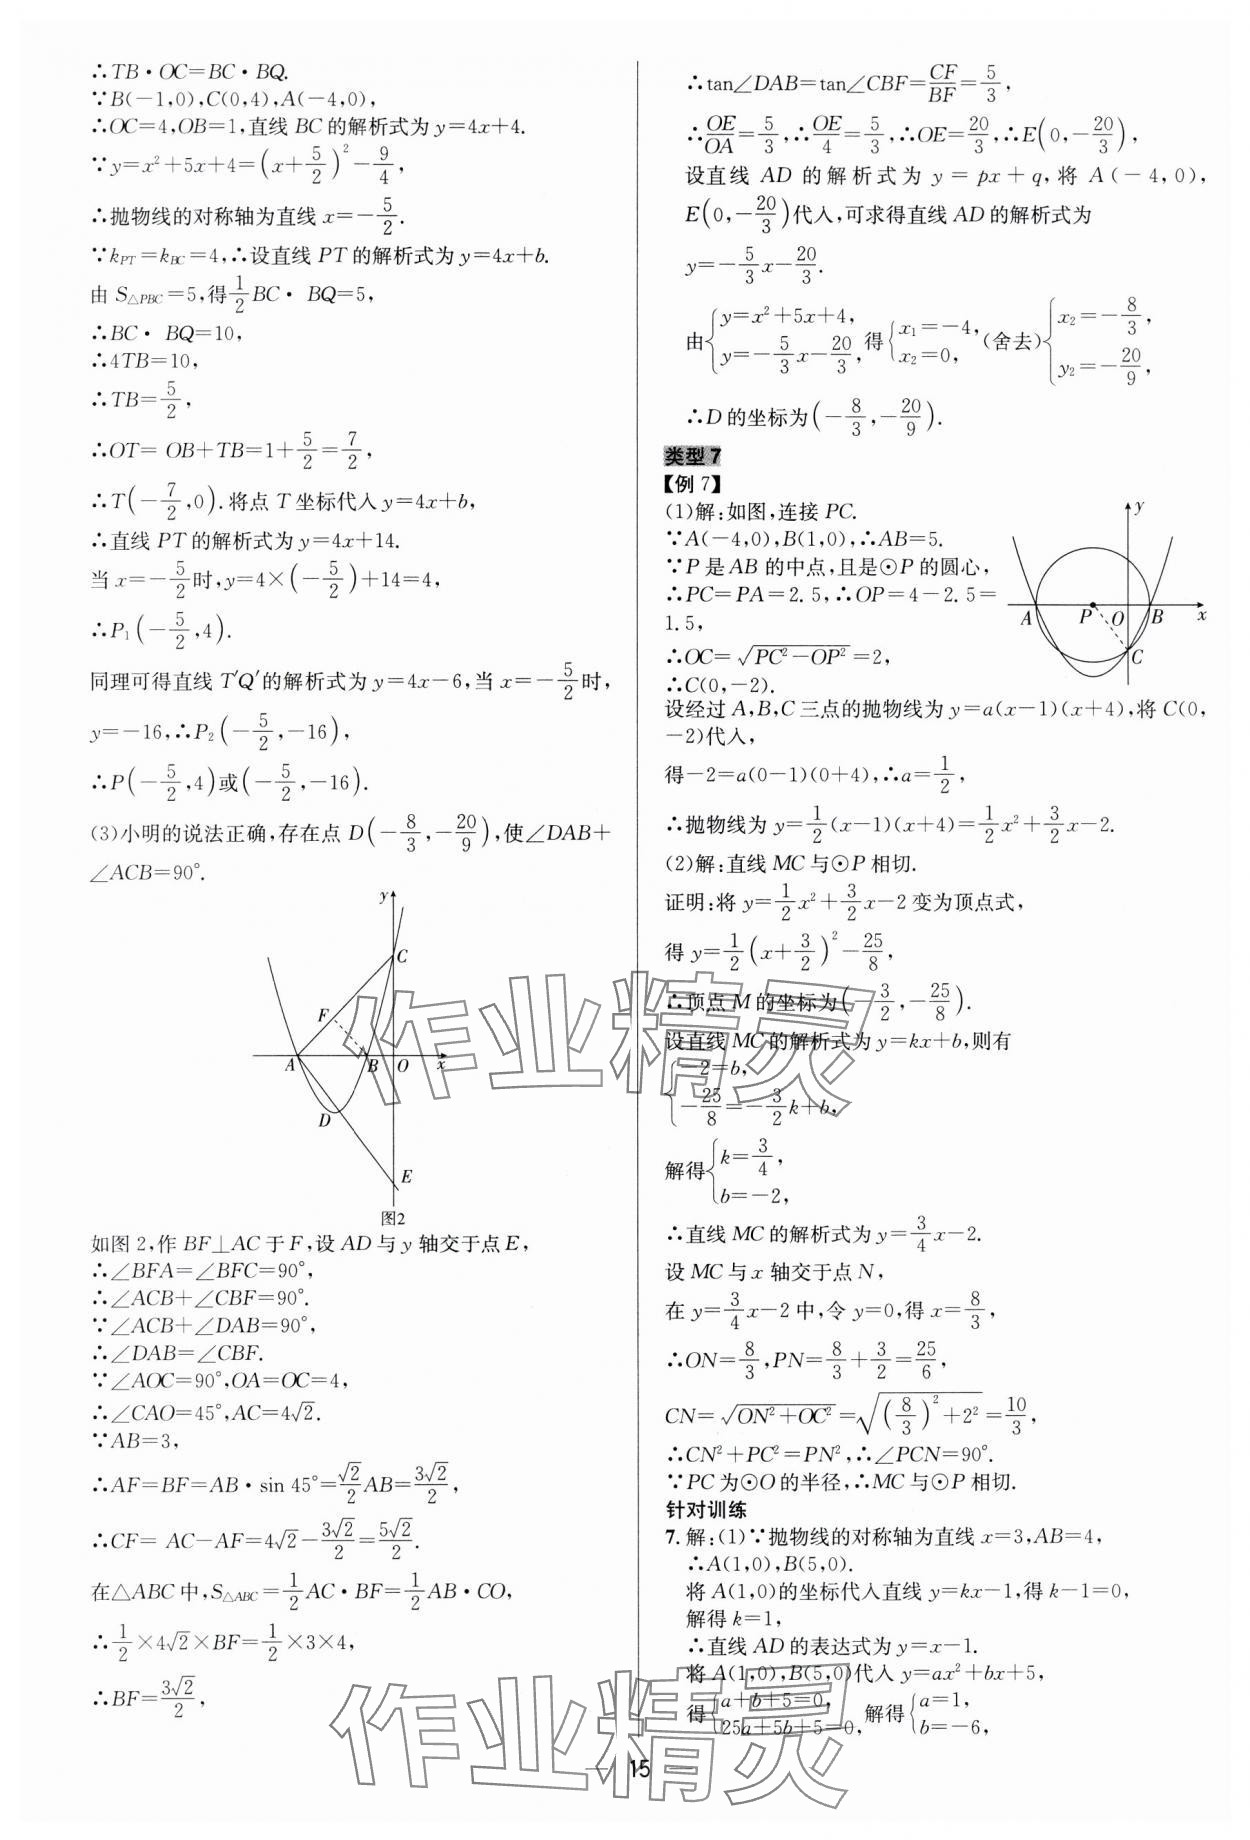 ∴TB·OC=BC·BQ.
∵B(-1,0),C(0,4),A(-4,0),
∴OC=4,OB=1,直线 BC 的解析式为 y=4x+4.
∵y=x²+5x+4=(x+5/2)²-9/4,
∴抛物线的对称轴为直线 x=-5/2.
∵k_PT=k_BC=4,∴设直线 PT 的解析式为 y=4x+b.
由 S△PBC=5,得1/2 BC· BQ=5,
∴BC· BQ=10,
∴4TB=10,
∴TB=5/2,
∴OT= OB+TB=1+5/2=7/2,
∴T(-7/2,0).将点 T 坐标代入 y=4x+b,
∴直线 PT 的解析式为 y=4x+14.
当 x=-5/2时,y=4×(-5/2)+14=4,
∴P₁(-5/2,4).
同理可得直线 T′Q′的解析式为 y=4x-6,当 x=-5/2时,
y=-16,∴P₂(-5/2,-16),
∴P(-5/2,4)或(-5/2,-16).
(3)小明的说法正确,存在点 D(-8/3,-20/9),使∠DAB+
∠ACB=90°.
y
C
F
A B O x
D
E
图2
如图 2,作 BF⊥AC 于 F,设 AD 与 y 轴交于点 E,
∴∠BFA=∠BFC=90°,
∴∠ACB+∠CBF=90°.
∵∠ACB+∠DAB=90°,
∴∠DAB=∠CBF.
∵∠AOC=90°,OA=OC=4,
∴∠CAO=45°,AC=4√2.
∵AB=3,
∴AF=BF=AB·sin 45°=√2/2 AB=3√2/2,
∴CF= AC-AF=4√2-3√2/2=5√2/2.
在△ABC 中,S△ABC=1/2 AC·BF=1/2 AB·CO,
∴1/2×4√2×BF=1/2×3×4,
∴BF=3√2/2,
∴tan∠DAB=tan∠CBF=CF/BF=5/3,
∴OE/OA=5/3,∴OE/4=5/3,∴OE=20/3,∴E(0,-20/3),
设直线 AD 的解析式为 y=px+q,将 A(-4,0),
E(0,-20/3)代入,可求得直线 AD 的解析式为
y=-5/3x-20/3.
由{y=x²+5x+4, y=-5/3x-20/3,得{x₁=-4, x₂=0,(舍去){x₂=-8/3, y₂=-20/9,
∴D 的坐标为(-8/3,-20/9).
类型 7
【例 7】
(1)解:如图,连接 PC.
∵A(-4,0),B(1,0),∴AB=5.
∵P 是 AB 的中点,且是⊙P 的圆心,
∴PC=PA=2.5,∴OP=4-2.5=
1.5,
∴OC=√(PC²-OP²)=2,
∴C(0,-2).
y
A P O B x
C
设经过 A,B,C 三点的抛物线为 y=a(x-1)(x+4),将 C(0,
-2)代入,
得-2=a(0-1)(0+4),∴a=1/2,
∴抛物线为 y=1/2(x-1)(x+4)=1/2x²+3/2x-2.
(2)解:直线 MC 与⊙P 相切.
证明:将 y=1/2x²+3/2x-2 变为顶点式,
得 y=1/2(x+3/2)²-25/8,
∴顶点 M 的坐标为(-3/2,-25/8).
设直线 MC 的解析式为 y=kx+b,则有
{-2=b, -25/8=-3/2k+b,
解得{k=3/4, b=-2,
∴直线 MC 的解析式为 y=3/4x-2.
设 MC 与 x 轴交于点 N,
在 y=3/4x-2 中,令 y=0,得 x=8/3,
∴ON=8/3,PN=8/3+3/2=25/6,
CN=√(ON²+OC²)=√((8/3)²+2²)=10/3,
∴CN²+PC²=PN²,∴∠PCN=90°.
∵PC 为⊙O 的半径,∴MC 与⊙P 相切.
针对训练
7.解:(1)∵抛物线的对称轴为直线 x=3,AB=4,
∴A(1,0),B(5,0).
将 A(1,0)的坐标代入直线 y=kx-1,得 k-1=0,
解得 k=1,
∴直线 AD 的表达式为 y=x-1.
将 A(1,0),B(5,0)代入 y=ax²+bx+5,
得{a+b+5=0, 25a+5b+5=0,解得{a=1, b=-6,
作业精灵
作业精灵
— 15 —